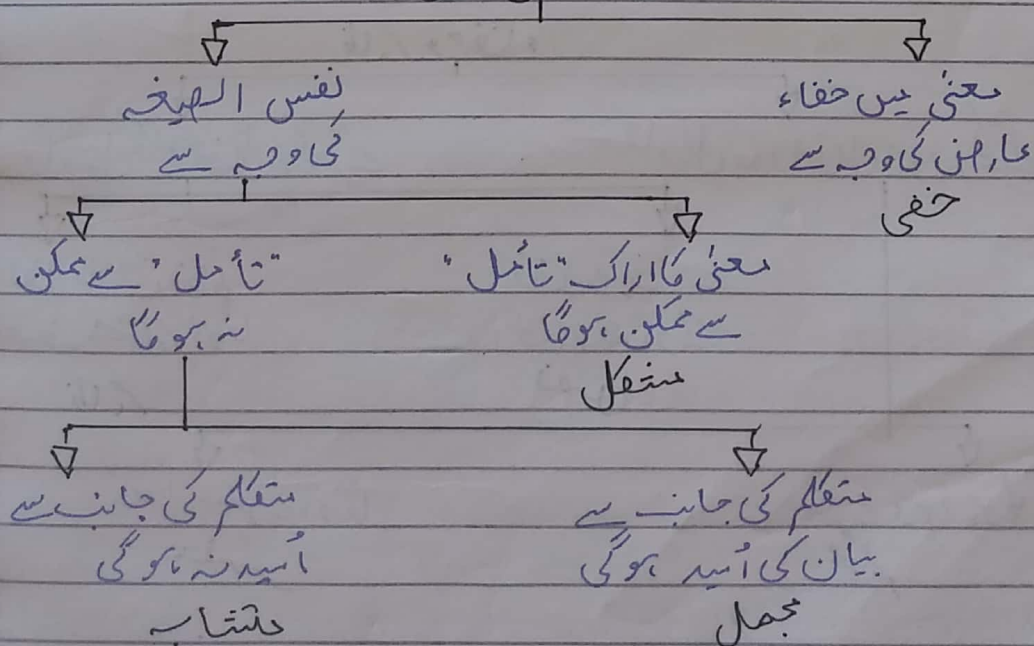 معنیٰ میں خفاء
عارض کی وجہ سے
خفی
نفس الصیغہ
کی وجہ سے
معنیٰ کا اراک "تأمل"
سے ممکن ہوگا
مشکل
"تأمل" سے ممکن
نہ ہوگا
متکلم کی جانب سے
بیان کی اُمید ہوگی
مجمل
متکلم کی جانب سے
اُمید نہ ہوگی
متشابہ